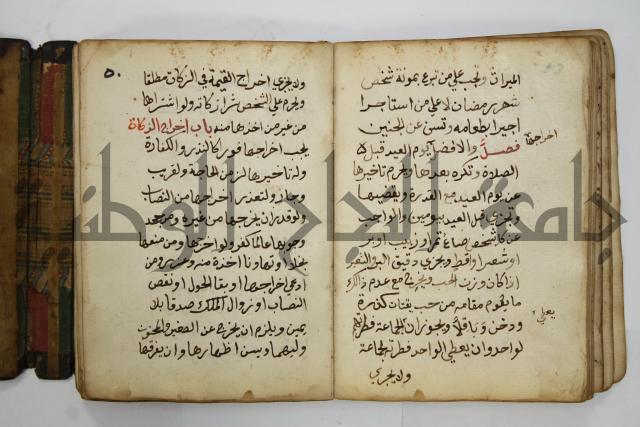 الميراث وتجب على من تبرع بمونة شخص
شهر رمضان لا على من استاجر
اجيرا بطعامه وتسن عن الجنين
اخراجها
فصل والافضل يوم العيد قبل
الصلاة وتكره بعدها ويحرم تاخيرها
عن يوم العيد مع القدرة ويقضيها
وتجزي قبل العيد بيومين والواجب
عن كل شخص صاع تمر او زبيب او بر
او شعير او اقط ويجزي دقيق البر والشعير
اذا كان وزن الحب ويجزي مع عدم ذلك
ما يقوم مقامه من حب يقتات كذرة
يعطي
ودخن وباقلا ويجوز ان الجماعة فطرتهم
لواحد وان يعطي الواحد فطرته الجماعة
ولا يجزي
٥٠
ولا يجزي اخراج القيمة في الزكاة مطلقا
ويحرم على الشخص شرا زكاته ولو اشتراها
من غير من اخذها منه باب اخراج الزكاة
يجب اخراجها فورا كالنذر والكفارة
وله تاخيرها لزمن الحاجة ولقريب
وجار ولتعذر اخراجها من النصاب
ولو قدر ان يخرجها من غيره ومن جحد
وجوبها عالما كفر ولو اخرجها ومن منعها
بخلا او تهاونا اخذت منه وعزر ومن
ادعى اخراجها او بقا الحول او نقص
النصاب او زوال الملك صدق بلا
يمين ويلزم ان يخرج عن الصغير والمجنون
وليهما ويسن اظهارها وان يفرقها
جامعة النجاح الوطنية